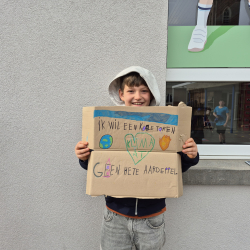 IK WIL EEN KOELE TOKEN
GEEN HETE AARDAPPEL